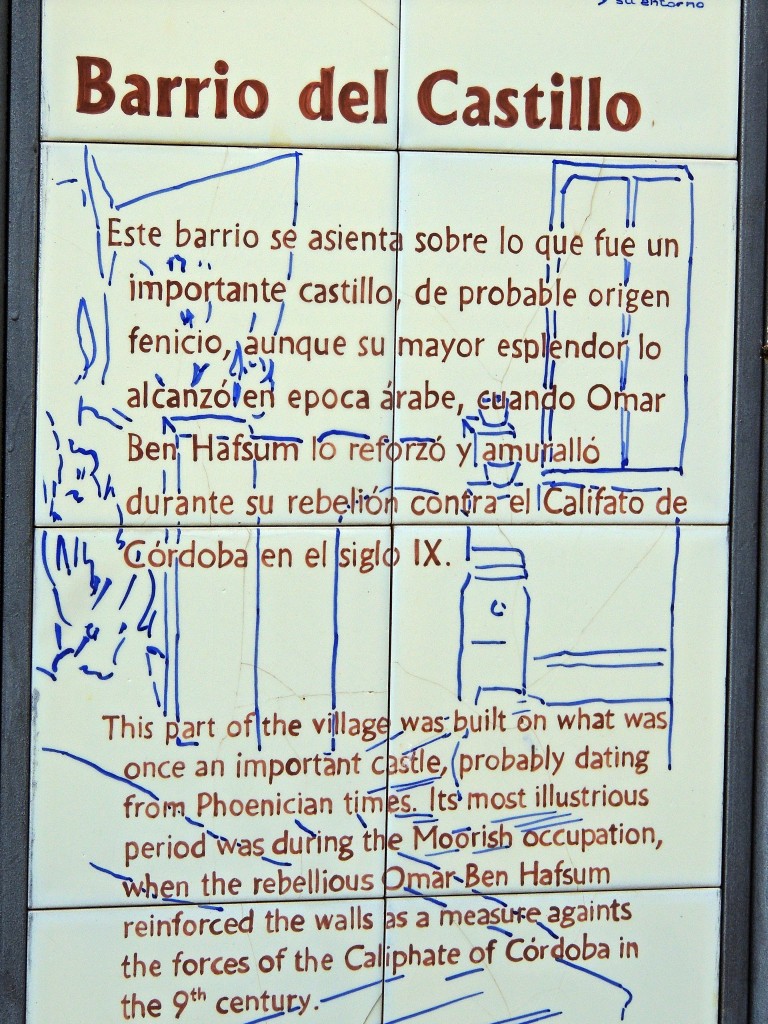 y su entorno
Barrio del Castillo
Este barrio se asienta sobre lo que fue un
importante castillo, de probable origen
fenicio, aunque su mayor esplendor lo
alcanzó en epoca árabe, cuando Omar
Ben Hafsum lo reforzó y amuralló
durante su rebelión contra el Califato de
Córdoba en el siglo IX.
This part of the village was built on what was
once an important castle, (probably dating
from Phoenician times. Its most illustrious
period was during the Moorish occupation,
when the rebellious Omar Ben Hafsum
reinforced the walls as a measure againts
the forces of the Caliphate of Córdoba in
the 9th century.